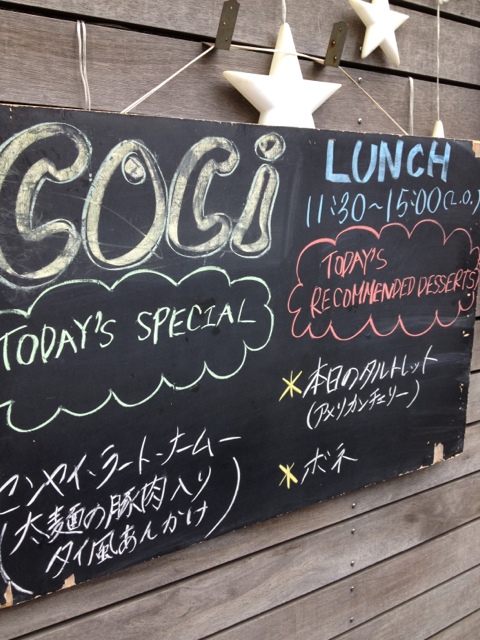 COCi
TODAY'S SPECIAL
センヤイ・ラート・ナームー
(太麺の豚肉入り
タイ風あんかけ)
LUNCH
11:30~15:00(L.O.)
TODAY'S
RECOMMENDED DESSERTS
*本日のタルトレット
(アメリカンチェリー)
*ボネ